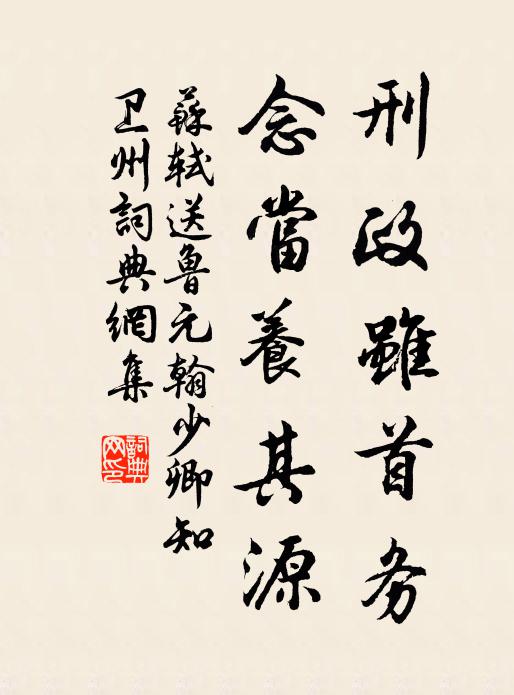 刑政雖首务
念當養其源
蘇轼送魯元翰少卿知
卫州詞典網集
詞典网印